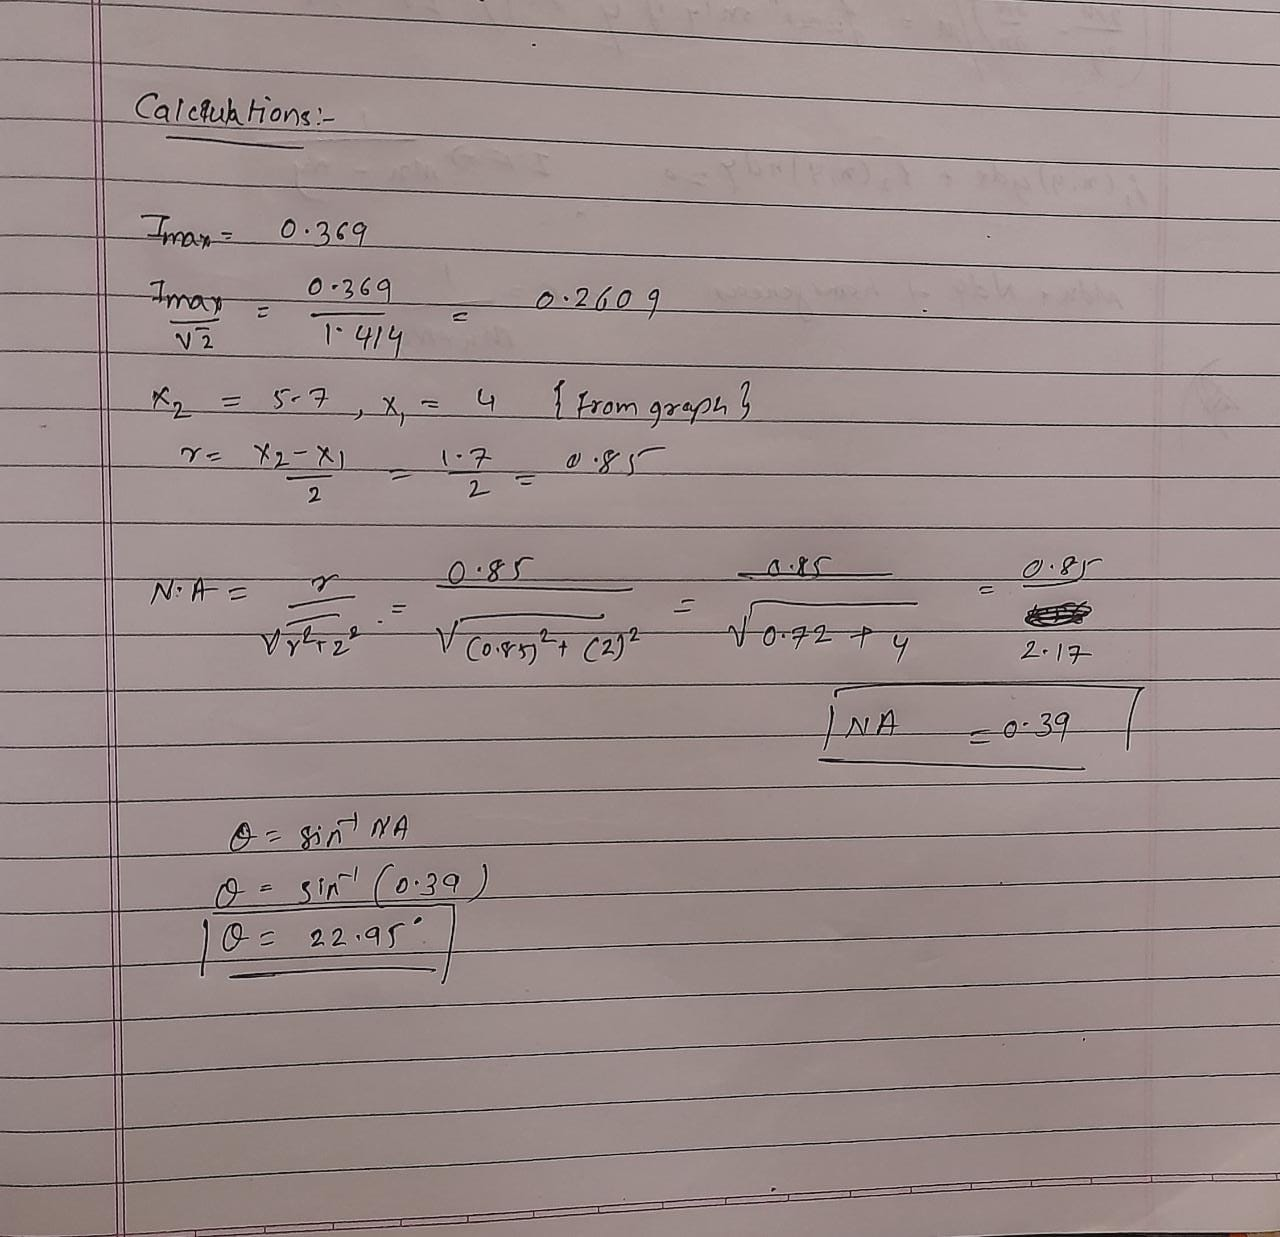 Calculations:-
Imax = 0.369
Imax/√2 = 0.369/1.414 = 0.2609
x₂ = 5.7 , x₁ = 4 {from graph}
r = x₂-x₁/2 = 1.7/2 = 0.85
N.A = r/√r²+z² = 0.85/√(0.85)²+(2)² = 0.85/√0.72+4 = 0.85/2.17
NA = 0.39
θ = sin⁻¹ NA
θ = sin⁻¹ (0.39)
θ = 22.95°